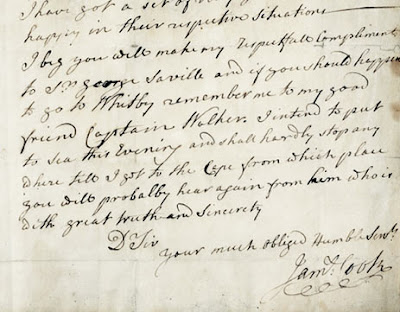 I have got a set of
happy in their respective situations
I beg you will make my respectfull Compliment
to Sr. george Saville and if you should happen
to go to Whitby remember me to my good
friend Captain Walker. I intend to put
to sea this Evening and shall hardly stop any
where till I got to the Cape from which place
you will probalby hear again from him who is
with great truth and sincerety
Dr. Sir
your much obliged Humble Servt.
Jams. Cook